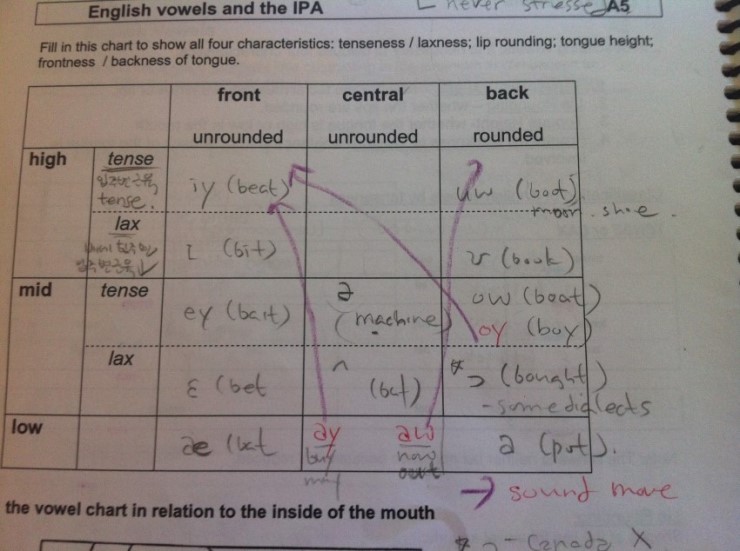 English vowels and the IPA
never stressed A5
Fill in this chart to show all four characteristics: tenseness / laxness; lip rounding; tongue height;
frontness / backness of tongue.
front central back
unrounded unrounded rounded
high tense
tense.
iy (beat) uw (boot)
moon. shoe.
lax
ɪ (bit) ʊ (book)
mid tense
ey (bait) ə (machine) ow (boat)
oy (boy)
lax
ɛ (bet ʌ (but) *ɔ (bought)
- some dialects
low
ae (bat ay aw a (pot).
buy now
out
→ sound move
the vowel chart in relation to the inside of the mouth
- Canada X